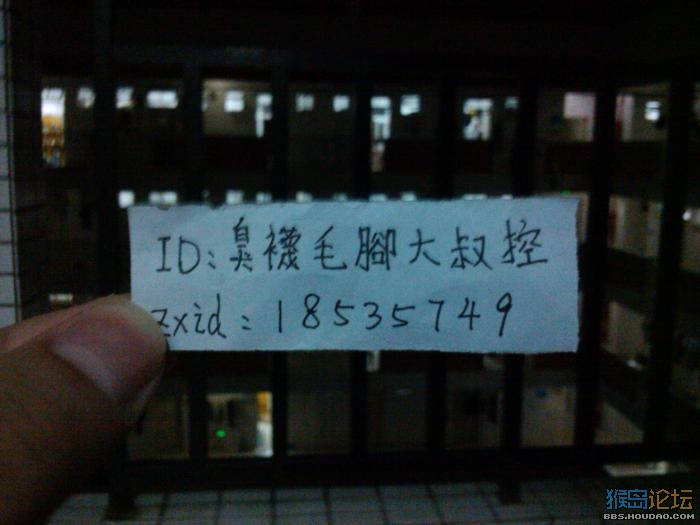 ID:臭襪毛腳大叔控
zxid:18535749
猴岛论坛
BBS.HOUDAO.COM